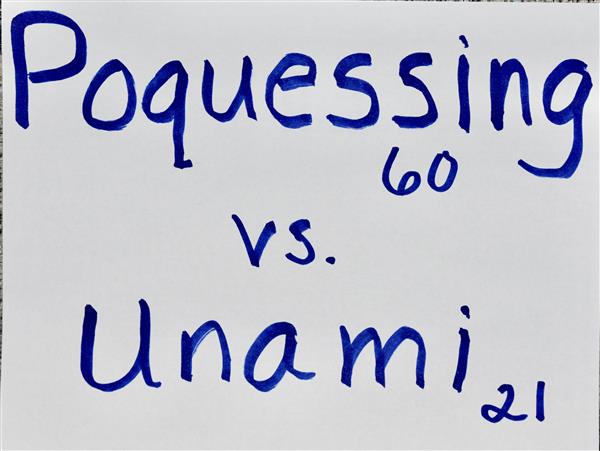 Poquessing
60
vs.
Unami
21